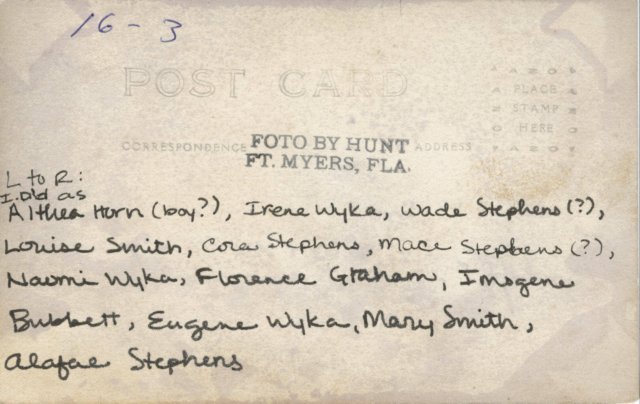 16-3
POST CARD
PLACE
STAMP
HERE
CORRESPONDENCE
ADDRESS
FOTO BY HUNT
FT. MYERS, FLA.
L to R:
I.D.'d as
Althea Horn (boy?), Irene Wyka, Wade Stephens (?),
Louise Smith, Cora Stephens, Mace Stephens (?),
Naomi Wyka, Florence Graham, Imogene
Bubbett, Eugene Wyka, Mary Smith,
Alafae Stephens